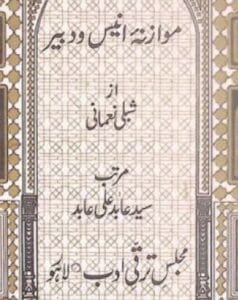 موازنۂ انیس و دبیر
از
شبلی نعمانی
مرتب
سید عابد علی عابد
مجلس ترقی ادب لاہور